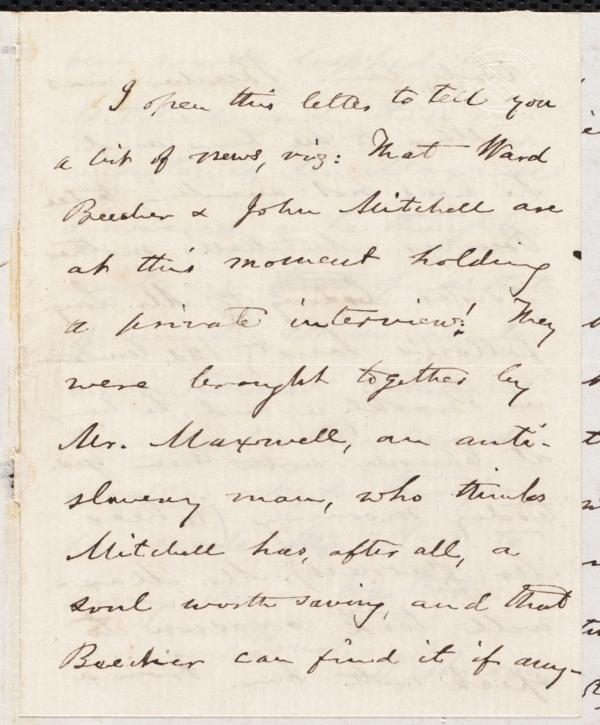 I open this letter to tell you
a bit of news, viz: That Ward
Beecher & John Mitchell are
at this moment holding
a private interview! They
were brought together by
Mr. Maxwell, an anti-
slavery man, who thinks
Mitchell has, after all, a
soul worth saving, and that
Beecher can find it if any-